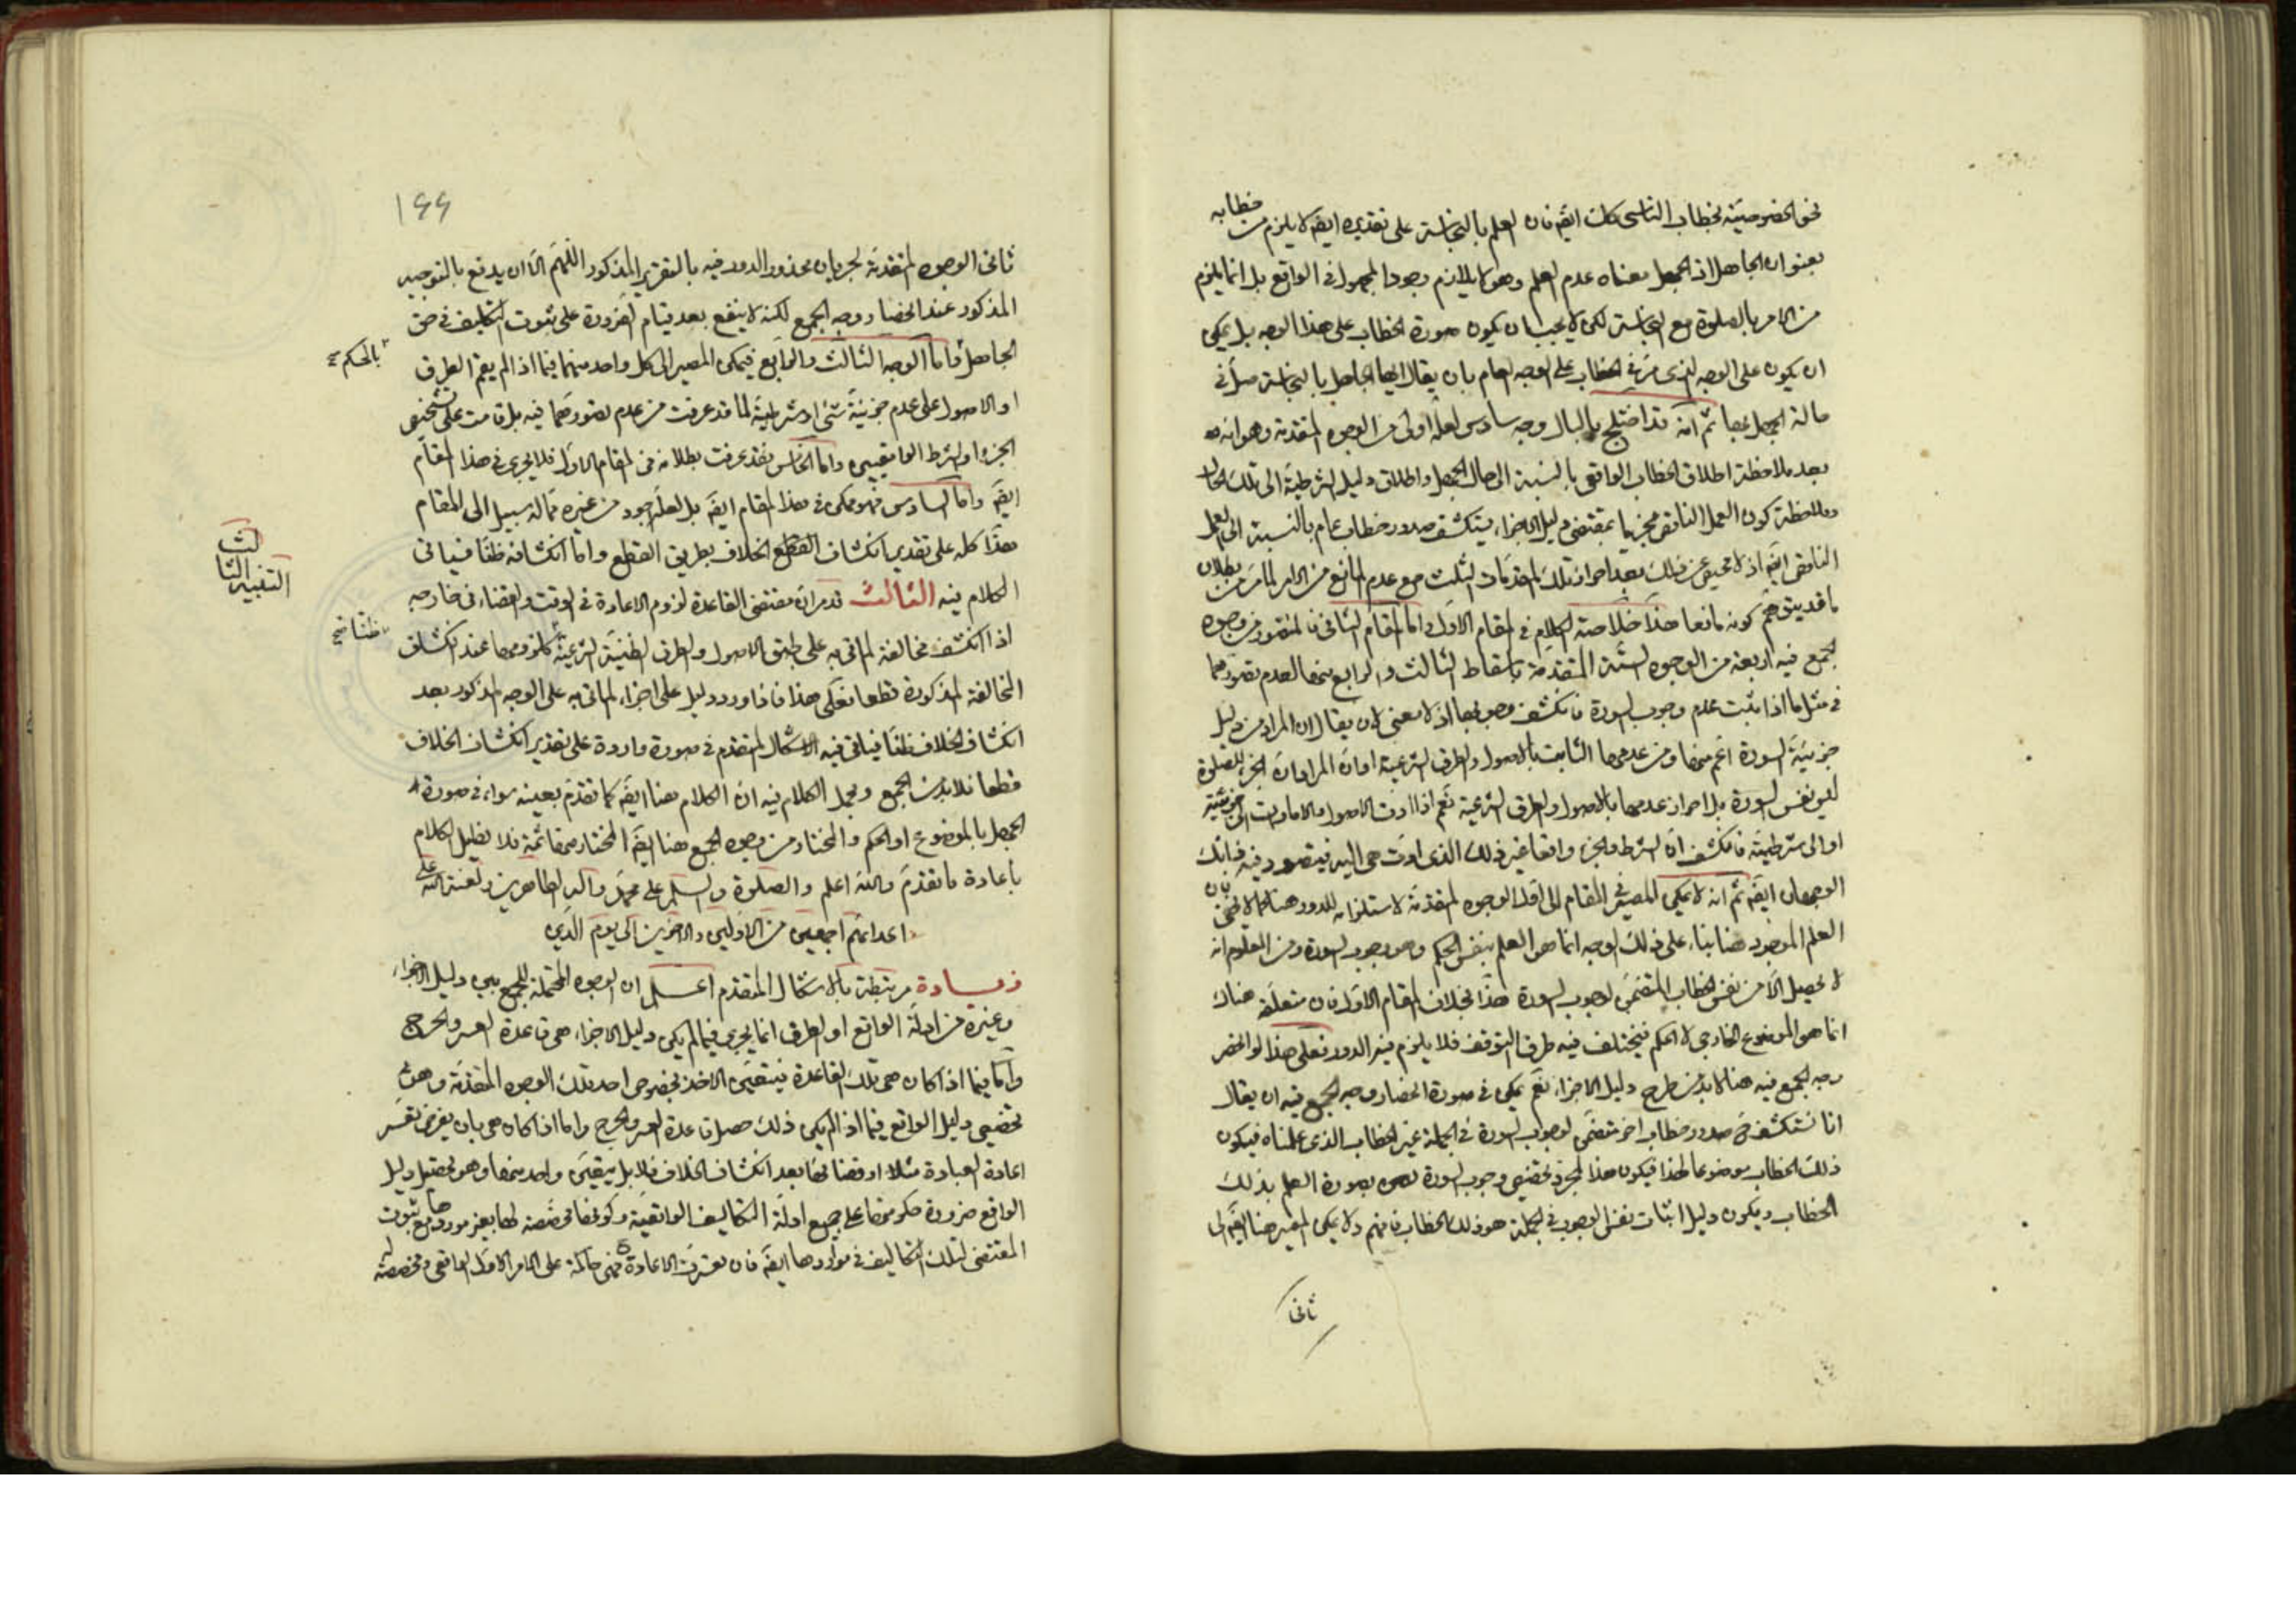 نحو الخصوصية لخطاب الناسي كان ايضا فان العلم بالنجاسة على تقديره ايضا لا يلزم من خطابه
بعنوان الجاهل اذ الجهل معناه عدم العلم وهو لا يلازم وجود المجهول في الواقع بل انما يلزم
من الامر بالصلوة مع النجاسة لكن لا يجب ان يكون صورة الخطاب على هذا الوجه بل يمكن
ان يكون على الوجه الذي مر في الخطاب على الوجه العام بان يقال ايها الجاهل بالنجاسة صل في
حالة الجهل بها ثم انه قد اختلج بالبال وجه سادس لعله اولى من الوجوه المتقدمة وهو انه
بعد ملاحظة اطلاق الخطاب الواقعي بالنسبة الى حال الجهل واطلاق دليل الشرطية الى تلك الحال
وملاحظة كون العمل الناقص مجزيا بمقتضى دليل الاجزاء يستكشف صدور خطاب عام بالنسبة الى العمل
الناقص ايضا اذ لا محيص عن ذلك بعد احراز تلك المقدمات الثلث مع عدم المانع من الامر لما مر من بطلان
ما قد يتوهم كونه مانعا هذا خلاصة الكلام في المقام الاول واما المقام الثاني فالمتصور من وجوه
الجمع فيه اربعة من الوجوه الستة المتقدمة باسقاط الثالث والرابع منها لعدم تصورهما
في مثل ما اذا ثبت عدم وجوب السورة فانكشف وجوبها اذ لا معنى لان يقال ان المراد من دليل
جزئية السورة اعم منها ومن عدمها الثابت بالاصول والطرق الشرعية او ان المراد ان الجزء للصلوة
ليس نفس السورة بل احراز عدمها بالاصول والطرق الشرعية نعم اذا ادت الاصول والامارات الى جزئية
او الى شرطيته فانكشف ان الشرط والجزء واقعا غير ذلك الذي ادت هي اليه فيتصور فيه ذانك
الوجهان ايضا ثم انه لا يمكن المصير في المقام الى اول الوجوه المتقدمة لاستلزامه للدور هنا كما لا يخفى بان
العلم الموضوع هنا بناء على ذلك الوجه انما هو العلم بنفس الحكم وهو وجوب السورة ومن المعلوم انه
لا يحصل الا من نفس الخطاب المتضمن لوجوب السورة هذا بخلاف المقام الاول فان متعلقه هناك
انما هو الموضوع الخارجي لا الحكم فيختلف فيه طرفا التوقف فلا يلزم فيه الدور فعلى هذا لو انحصر
وجه الجمع فيه هنا لا بد من طرح دليل الاجزاء نعم يمكن في صورة انحصار وجه الجمع فيه ان يقال
انا نستكشف من صدور خطاب اخر متضمن لوجوب السورة في الجملة غير الخطاب الذي علمناه فيكون
ذلك الخطاب موضوعا لهذا فيكون هذا لمجرد تخصيص وجوب السورة بصورة العلم بذلك
الخطاب ويكون دليل اثبات نفس الوجوب في الجملة هو ذلك الخطاب فافهم ولا يمكن المصير هنا ايضا الى
ثاني
١٩٩
ثاني الوجوه المتقدمة لجريان محذور الدور فيه بالتقرير المذكور اللهم الا ان يدفع بالتوجيه
المذكور عند انحصار وجه الجمع لكنه لا ينفع بعد قيام الضرورة على ثبوت التكليف في حق
الجاهل واما الوجه الثالث والرابع فيمكن المصير الى كل واحد منهما فيما اذا لم يقم الطرق
بالحكم
او الاصول على عدم جزئية شئ او شرطيته لما قد عرفت من عدم تصورهما فيه بل قامت على تشخيص
الجزء او الشرط الواقعيين واما الخامس فقد عرفت بطلانه في المقام الاول فلا يجري في هذا المقام
ايضا واما السادس فهو ممكن في هذا المقام ايضا بل لعله اجود من غيره مما له سبيل الى المقام
هذا كله على تقدير انكشاف القطع الخلاف بطريق القطع واما انكشافه ظنا فسياتي
التنبيه الثالث
الكلام فيه الثالث قد مر ان مقتضى القاعدة لزوم الاعادة في الوقت والقضاء في خارجه
اذا انكشف مخالفة الماتي به على طبق الاصول والطرق الظنية الشرعية كلزومهما عند انكشاف
ظنا صح
المخالفة المذكورة قطعا فعلى هذا فاذا ورد دليل على اجزاء الماتي به على الوجه المذكور بعد
انكشاف الخلاف ظنا فياتي فيه الاشكال المتقدم في صورة وارود على تقدير انكشاف الخلاف
قطعا فلا بد من الجمع ومجمل الكلام فيه ان الكلام هنا ايضا كما تقدم بعينه سواء في صورة
الجهل بالموضوع او الحكم والمختار من وجوه الجمع هنا ايضا المختار منها ثمة فلا نطيل الكلام
باعادة ما تقدم والله اعلم والصلوة والسلم على محمد وآله الطاهرين ولعنة الله على
اعدائهم اجمعين من الاولين والاخرين الى يوم الدين
زيادة مرتبطة بالاشكال المتقدم اعلم ان الوجوه المحتملة للجمع بين دليل الاجزاء
وغيره من ادلة الواقع او الطرق انما يجري فيما لم يكن دليل الاجزاء هي قاعدة العسر والحرج
واما فيما اذا كان هي تلك القاعدة فيتعين الاخذ بخصوص احد تلك الوجوه المتقدمة وهو
تخصيص دليل الواقع فيما اذا لم يكن ذلك حصل قاعدة العسر والحرج واما اذا كان هي بان يفرض تعسر
اعادة العبادة مثلا او قضائها بعد انكشاف الخلاف فلا بل يتعين واحد منها وهو تخصيص دليل
الواقع ضرورة حكومتها على جميع ادلة التكاليف الواقعية وكونها مخصصة لها بغير موردها مع ثبوت
المقتضي لتلك التكاليف في مواردها ايضا فان تعسرت الاعادة فهي حاكمة على الامر الاول الواقعي ومخصصة له